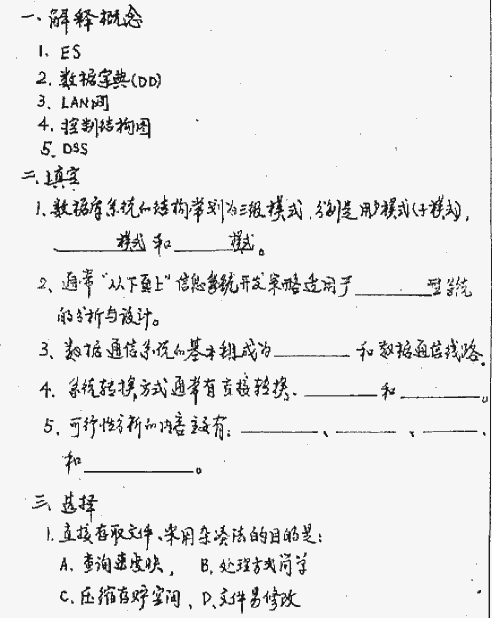 一、解释概念
1. ES
2. 数据字典(DD)
3. LAN网
4. 控制结构图
5. DSS
二、填空
1. 数据库系统的结构常划为三级模式,分别是用户模式(子模式),
______模式和______模式。
2、通常“从下而上”信息系统开发策略适用于______型系统
的分析与设计。
3、数据通信系统的基本组成为______和数据通信线路。
4、系统转换方式通常有直接转换、______和______。
5、可行性分析的内容主要有:______、______、______、
和______。
三、选择
1. 直接存取文件,采用杂凑法的目的是:
A、查询速度快, B、处理方式简单
C、压缩存贮空间、D、文件易修改